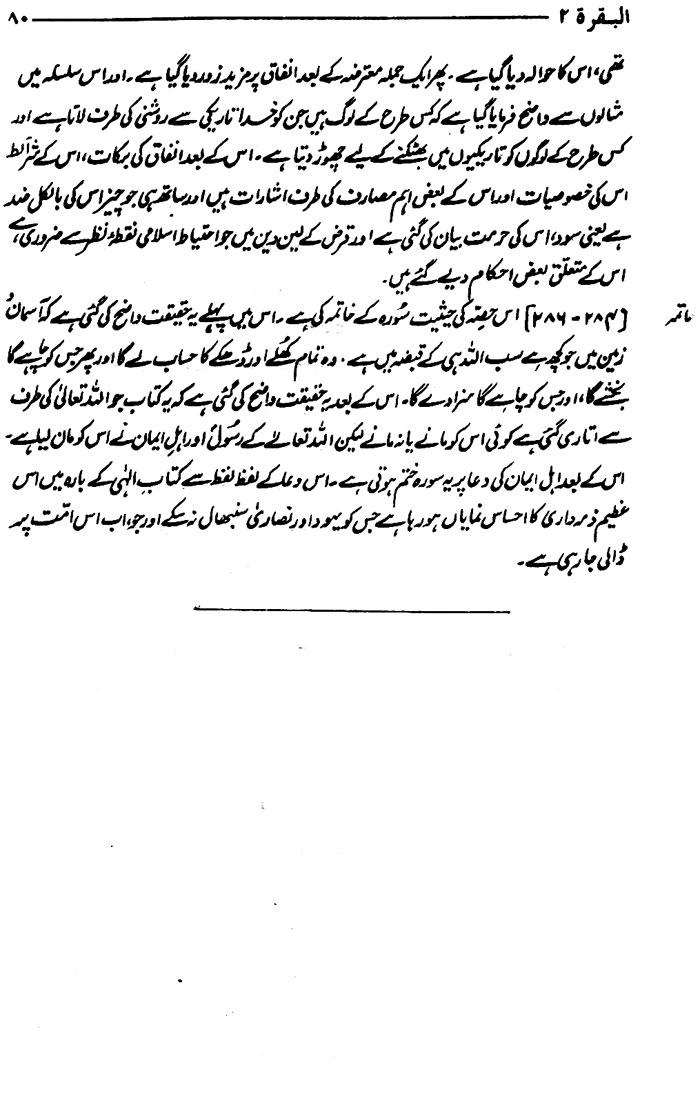 البقرة ۲ ۸۰
تھی، اس کا حوالہ دیا گیا ہے۔ پھر ایک جملہ معترضہ کے بعد انفاق پر مزید زور دیا گیا ہے۔ اور اس سلسلہ میں
مثالوں سے واضح فرمایا گیا ہے کہ کس طرح کے لوگ ہیں جن کو خدا تاریکی سے روشنی کی طرف لاتا ہے اور
کس طرح کے لوگوں کو تاریکیوں میں بھٹکنے کے لیے چھوڑ دیتا ہے۔ اس کے بعد انفاق کی برکات، اس کے شرائط
اس کی خصوصیات اور اس کے بعض اہم مصارف کی طرف اشارات ہیں اور ساتھ ہی جو چیز اس کی بالکل ضد
ہے یعنی سود، اس کی حرمت بیان کی گئی ہے اور قرض کے لین دین میں جو احتیاط اسلامی نقطۂ نظر سے ضروری ہے،
اس کے متعلق بعض احکام دیے گئے ہیں۔
خاتمہ [۲۸۴-۲۸۶] اس حصہ کی حیثیت سورہ کے خاتمہ کی ہے۔ اس میں پہلے یہ حقیقت واضح کی گئی ہے کہ آسمان و
زمین میں جو کچھ ہے سب اللہ ہی کے قبضہ میں ہے۔ وہ تمام کھلے اور ڈھکے کا حساب لے گا اور پھر جس کو چاہے گا
بخشے گا، اور جس کو چاہے گا سزا دے گا۔ اس کے بعد یہ حقیقت واضح کی گئی ہے کہ یہ کتاب جو اللہ تعالیٰ کی طرف
سے اتاری گئی ہے کوئی اس کو مانے یا نہ مانے لیکن اللہ تعالےٰ کے رسولؐ اور اہلِ ایمان نے اس کو مان لیا ہے۔
اس کے بعد اہل ایمان کی دعا پر یہ سورہ ختم ہوتی ہے۔ اس دعا کے لفظ لفظ سے کتاب الٰہی کے بارہ میں اس
عظیم ذمہ داری کا احساس نمایاں ہو رہا ہے جس کو یہود اور نصاریٰ سنبھال نہ سکے اور جو، اب اس امّت پر
ڈالی جا رہی ہے۔